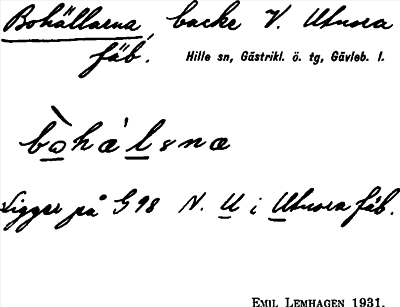 Bohällarna, backe V. Utnora
fäb. Hille sn, Gästrikl. ö. tg, Gävleb. l.
bòhá lsna
Ligger på G98 N. U i Utnora fäb.
EMIL LEMHAGEN 1931.